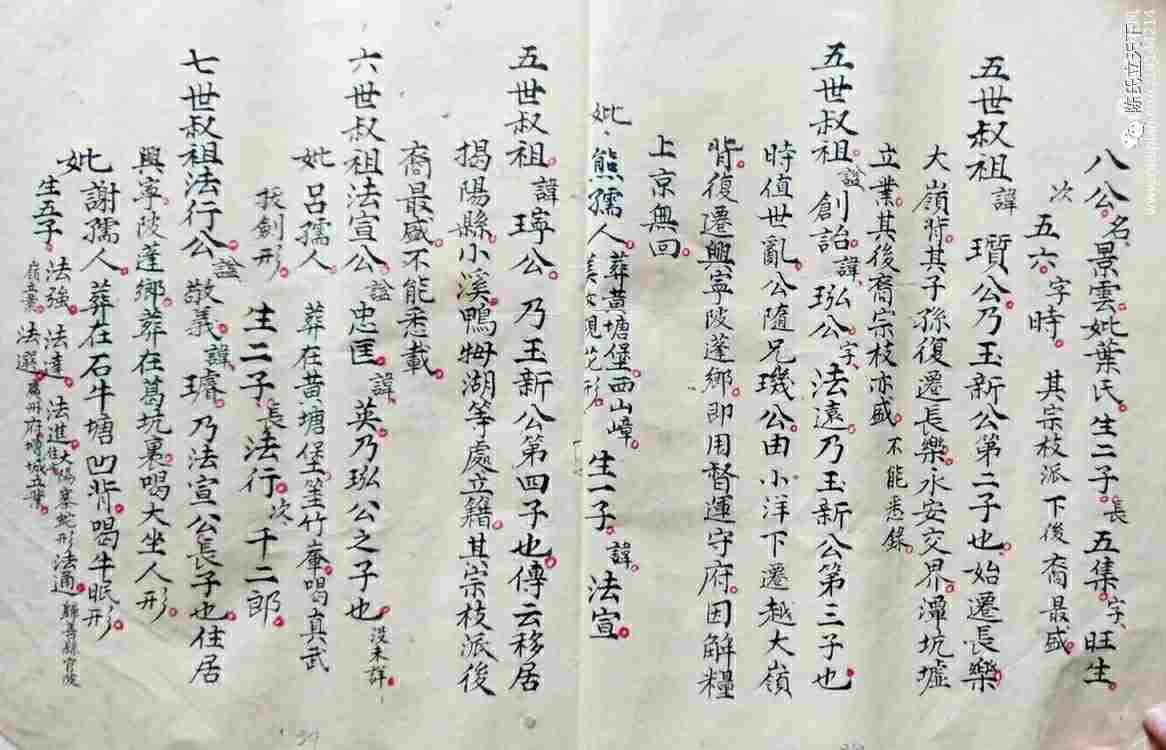 八公名景雲妣葉氏生二子長五集字旺生
次五六字時其宗枝派下後裔最盛
五世叔祖諱瓚公乃玉新公第二子也始遷長樂
大嶺背其子孫復遷長樂永安交界潭坑墟
立業其後裔宗枝亦盛不能悉錄
五世叔祖諡創詒諱泓公字法遠乃玉新公第三子也
時值世亂公隨兄璣公由小洋下遷越大嶺
背復遷興寧陂蓬鄉即用督運守府因解糧
上京無回
妣熊孺人葬黃塘堡西山嶂美女現花形生一子諱法宣
五世叔祖諱璿公乃玉新公第四子也傳云移居
揭陽縣小溪鴨𡜵湖等處立籍其宗枝派後
裔最盛不能悉載
六世叔祖法宣公諡忠匡諱英乃泓公之子也沒未詳
妣呂孺人葬在黃塘堡筀竹崠喝真武
拔劍形生二子長法行次千二郎
七世叔祖法行公諡敬義諱璿乃法宣公長子也住居
興寧陂蓬鄉葬在葛坑裏喝大坐人形
妣謝孺人葬在石牛塘凹背喝牛眠形
生五子法強法達法進住大陽寨蛇形法通歸善縣官陂
嶺立業法選惠州府磚城立業
陈氏立开石